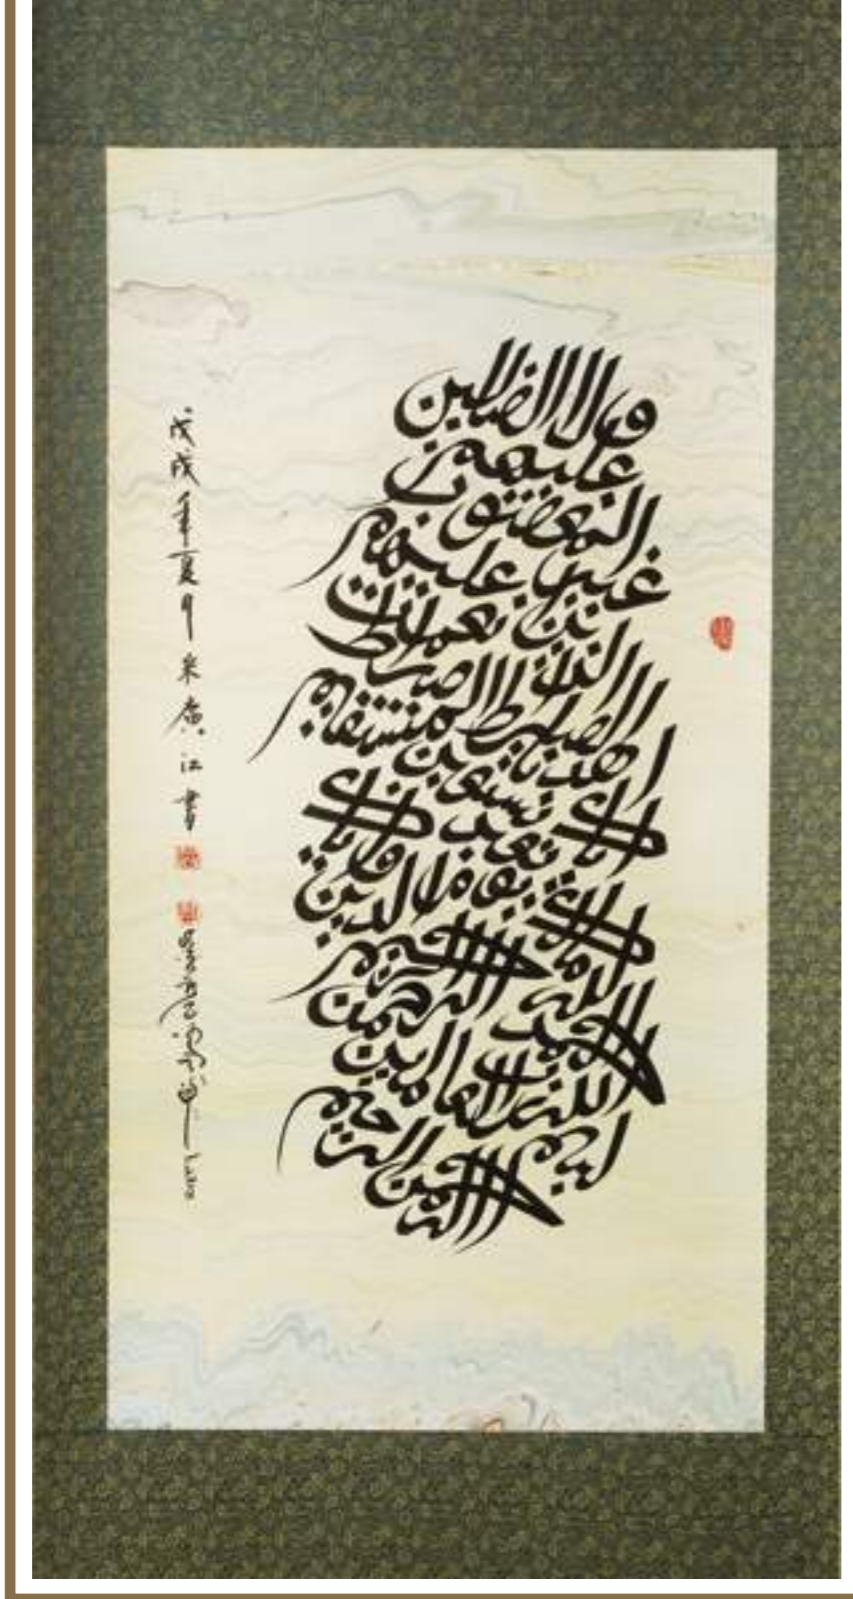 بسم الله الرحمن الرحيم
الحمد لله رب العالمين
الرحمن الرحيم
مالك يوم الدين
اياك نعبد واياك نستعين
اهدنا الصراط المستقيم
صراط الذين انعمت عليهم
غير المغضوب عليهم
ولا الضالين
戊戌年夏月米廣江書